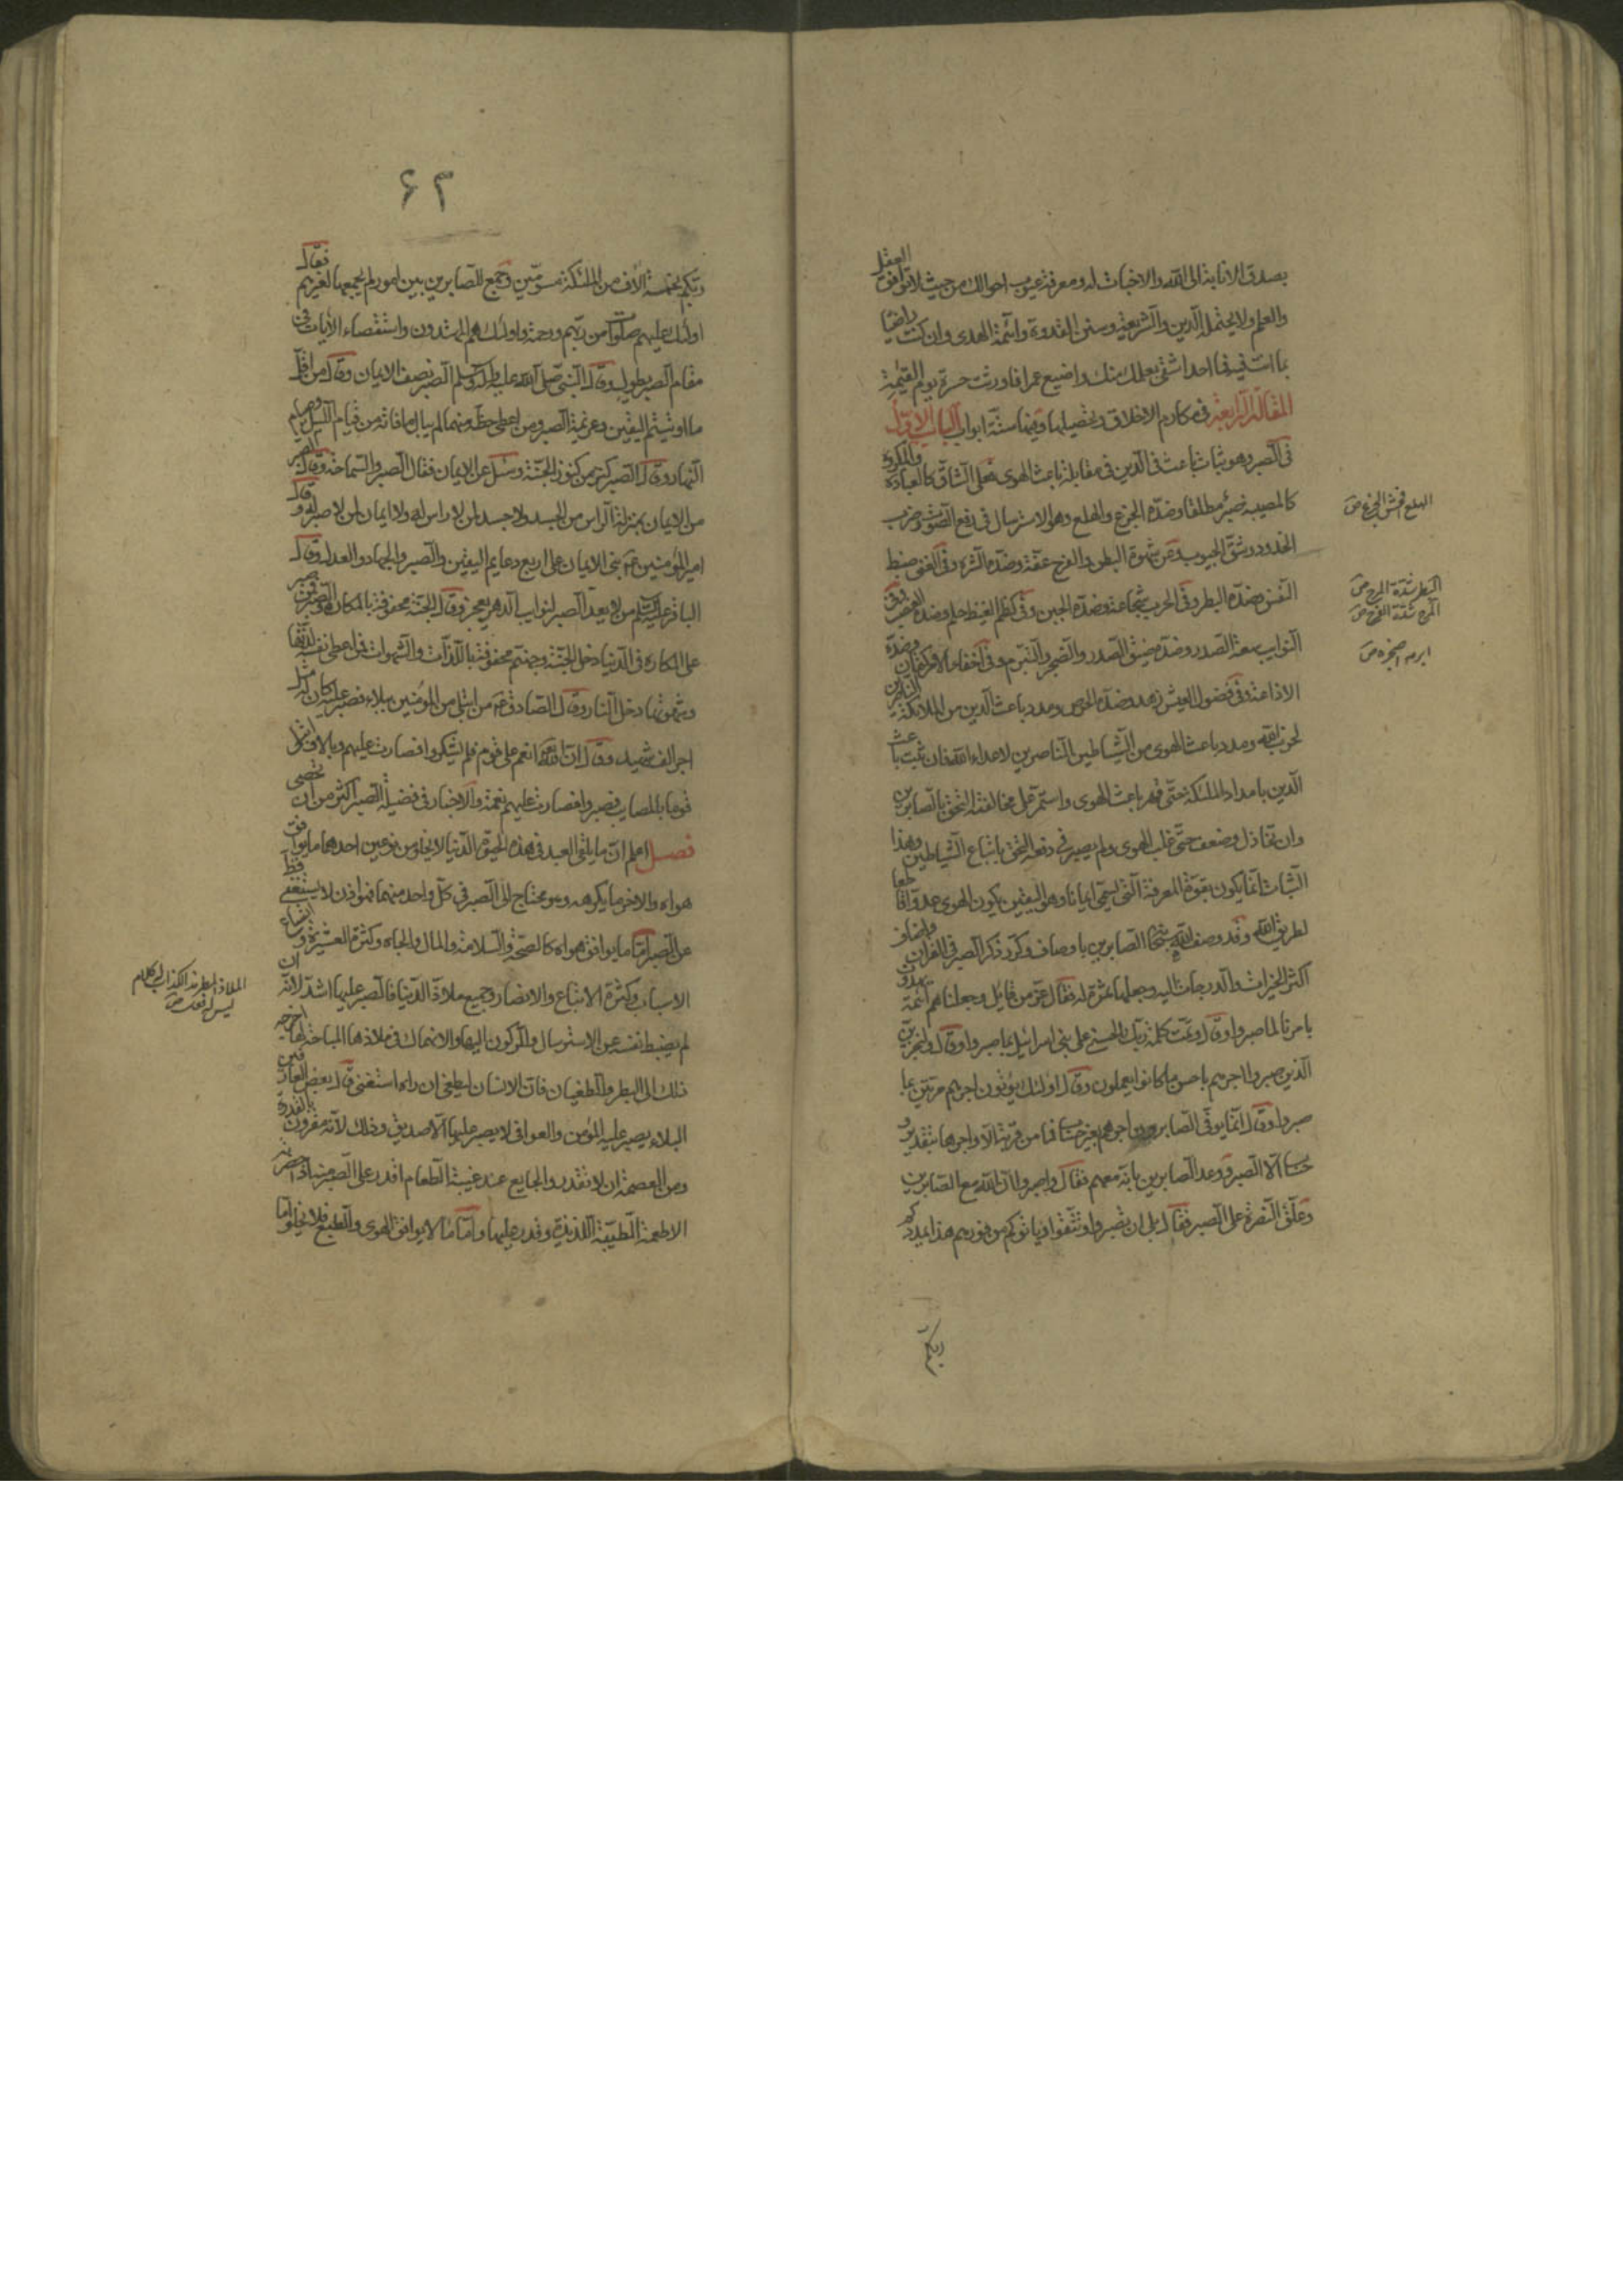 بصدق الانابة الى الله والاخبات له ومعرفة عيوب احوالك من حيث لا توافق العقل
والعلم ولا يحتمله الدين والشريعة وسنن القدوة وائمة الهدى وان كنت راضيا
بما انت فيه فما احد اشقى بعلمك منك واضيع عمرا فاورثت حسرة يوم القيمة
المقالة الرابعة في مكارم الاخلاق وتحصيلها وفيها ستة ابواب الباب الاول
في الصبر وهو ثبات باعث في الدين في مقابلة باعث الهوى فعلى الشاق كالعبادة والمكروه
كالمصيبة صبر مطلقا وضده الجزع والهلع وهو الاسترسال في رفع الصوت وضرب
الخدود وشق الجيوب وعن شهوة البطن والفرج عفة وضده الشره وفي الغنى ضبط
النفس وضده البطر وفي الحرب شجاعة وضده الجبن وفي كظم الغيظ حلم وضده الغضب وفي
النوايب سعة الصدر وضده ضيق الصدر والضجر والتبرم وفي اخفاء الامر كتمان وضده
الاذاعة وفي فضول العيش زهد وضده الحرص ومدد باعث الدين من الملائكة الناصرين
لحزب الله ومدد باعث الهوى من الشياطين الناصرين لاعداء الله فان ثبت باعث
الدين بامداد الملئكة حتى قهر باعث الهوى واستمر على مخالفته التحق بالصابرين
وان تخاذل وضعف حتى غلب الهوى ولم يصبر في دفعه التحق باتباع الشياطين وهذا
الثبات انما يكون بقوة المعرفة التي تسمى ايمانا وهو اليقين بكون الهوى عدوا قاطعا
لطريق الله وقد وصف الله سبحانه الصابرين باوصاف وكرر ذكر الصبر في القران واضاف
اكثر الخيرات والدرجات اليه وجعلها ثمرة له فقال عز من قايل وجعلنا هم ائمة يهدون
بامرنا لما صبروا وقال وتمت كلمة ربك الحسنى على بني اسرائيل بما صبروا وقال ولنجزين
الذين صبروا اجرهم باحسن ما كانوا يعملون وقال اولئك يؤتون اجرهم مرتين بما
صبروا وقال انما يوفى الصابرون اجرهم بغير حساب فما من قربة الا واجرها بتقدير و
حساب الا الصبر ووعد الصابرين بانه معهم فقال واصبروا ان الله مع الصابرين
وعلق النصرة على الصبر فقال بلى ان تصبروا وتتقوا وياتوكم من فورهم هذا يمددكم
ربكم
الهلع افحش الجزع ص
البطر شدة المرح ص
المرح شدة الفرح ص
ابرمه اضجره ص
۶۳
ربكم بخمسة الاف من الملئكة مسومين وجمع للصابرين بين امور لم يجمعها لغيرهم فقال
اولئك عليهم صلوات من ربهم ورحمة واولئك هم المهتدون واستقصاء الايات في
مقام الصبر يطول وقال النبي صلى الله عليه واله وسلم الصبر نصف الايمان وقال من اقل
ما اوتيتم اليقين وعزيمة الصبر ومن اعطى حظه منهما لم يبال ما فاته من قيام الليل وصيام
النهار وقال الصبر كنز من كنوز الجنة وسئل عن الايمان فقال الصبر والسماحة وقال الصبر
من الايمان بمنزلة الراس من الجسد ولا جسد لمن لا راس له ولا ايمان لمن لا صبر له وقال
امير المؤمنين ع بني الايمان على اربع دعايم اليقين والصبر والجهاد والعدل وقال
الباقر عليه السلم من لا يعد الصبر لنوايب الدهر يعجز وقال الجنة محفوفة بالمكاره والصبر فمن صبر
على المكاره في الدنيا دخل الجنة وجهنم محفوفة باللذات والشهوات فمن اعطى نفسه لذتها
وشهوتها دخل النار وقال الصادق ع من ابتلى من المؤمنين ببلاء فصبر عليه كان له مثل
اجر الف شهيد وقال ان الله انعم على قوم فلم يشكروا فصارت عليهم وبالا وابتلى
قوما بالمصايب فصبروا فصارت عليهم نعمة والاخبار في فضيلة الصبر اكثر من ان تحصى
فصل اعلم ان ما يلقى العبد في هذه الحيوة الدنيا لا يخلو من نوعين احدهما ما يوافق
هواه والاخر ما يكرهه وهو محتاج الى الصبر في كل واحد منهما فهو اذن لا يستغنى قط
عن الصبر اما ما يوافق هواه كالصحة والسلامة والمال والجاه وكثرة العشيرة واتساع
الاسباب وكثرة الاتباع والانصار وجميع ملاذ الدنيا فالصبر عليها اشد لانه ان
لم يضبط نفسه عن الاسترسال والركون اليها والانهماك في ملاذها المباحة لها اخرجه
ذلك الى البطر والطغيان فان الانسان ليطغى ان راه استغنى قال بعض العارفين
البلاء يصبر عليه المؤمن والعوافي لا يصبر عليها الا صديق وذلك لانه مقرون بالقدرة
ومن العصمة ان لا تقدر والجايع عند غيبة الطعام اقدر على الصبر منه اذا حضرته
الاطعمة الطيبة اللذيذة وقدر عليها واما ما لا يوافق الهوى والطبع فلا يخلو اما